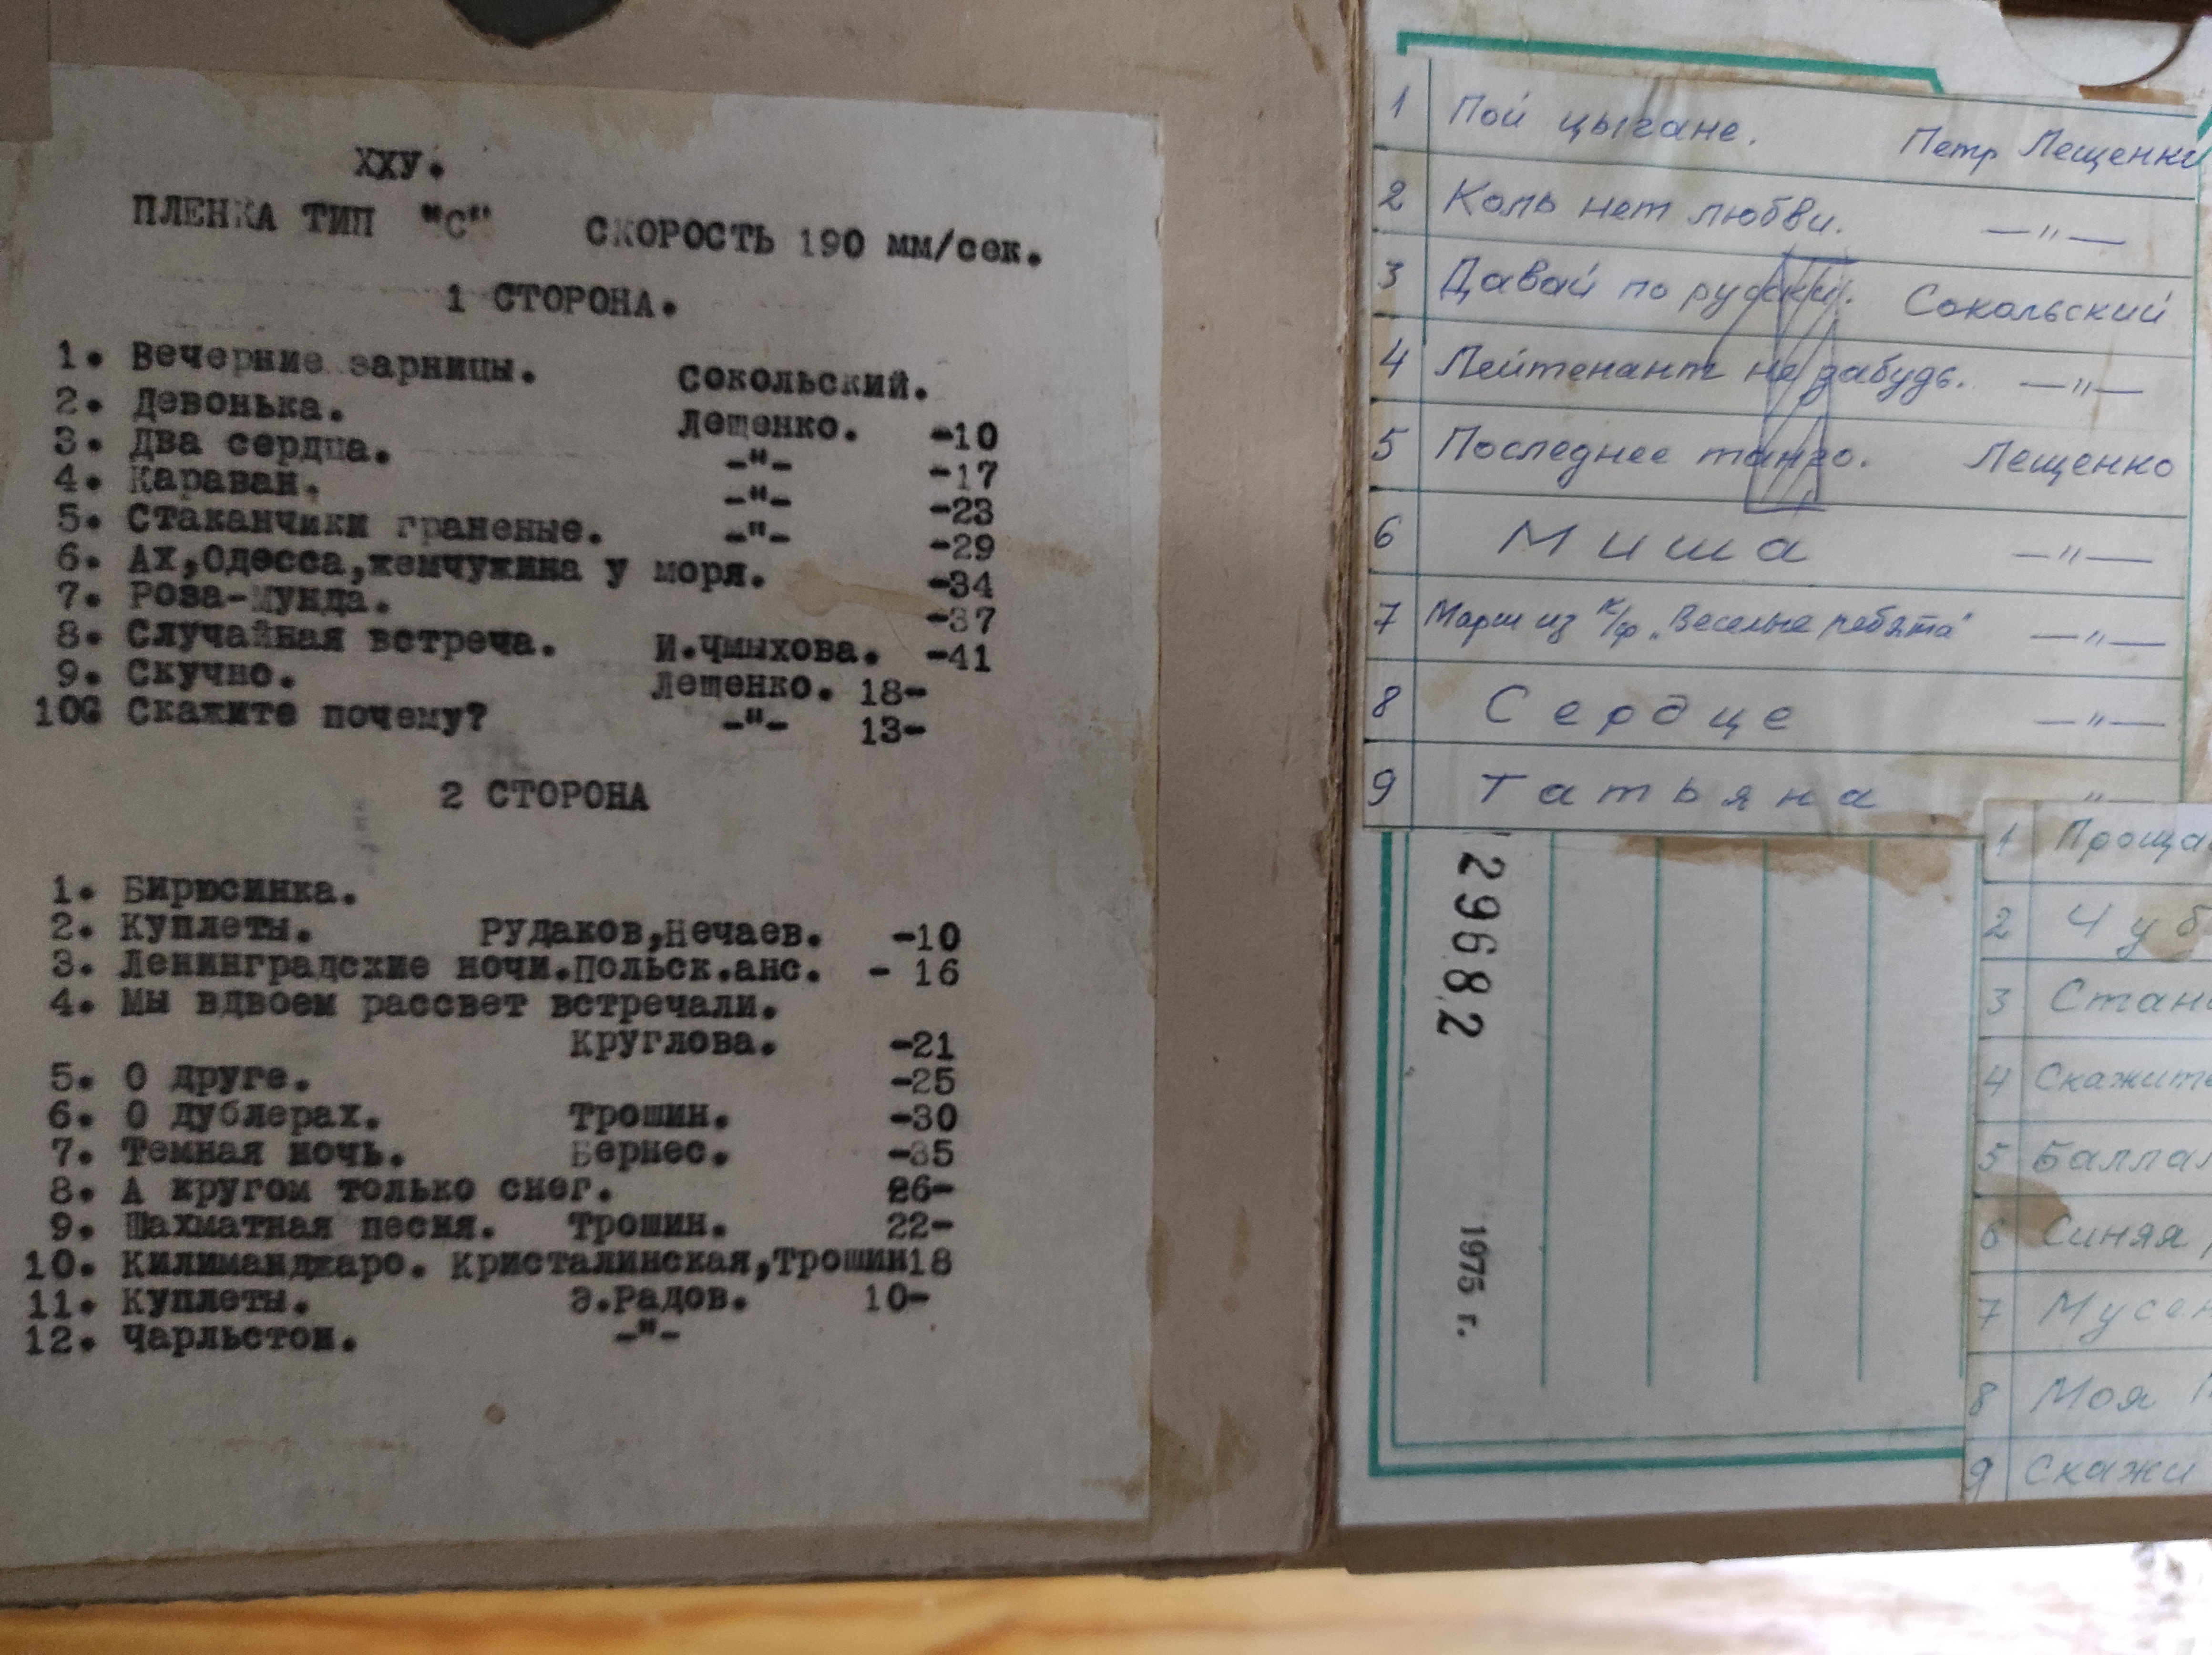 ХХУ.
ПЛЕНКА ТИП "С" СКОРОСТЬ 190 мм/сек.
1 СТОРОНА.
1. Вечерние зарницы. Сокольский.
2. Девонька. Лещенко. -10
3. Два сердца. -"- -17
4. Караван. -"- -23
5. Стаканчики граненые. -"- -29
6. Ах,Одесса,жемчужина у моря. -34
7. Роза-мунда. -37
8. Случайная встреча. И.Чмыхова. -41
9. Скучно. Лещенко. 18-
10G Скажите почему? -"- 13-
2 СТОРОНА
1. Бирюсинка.
2. Куплеты. Рудаков,Нечаев. -10
3. Ленинградские ночи.Польск.анс. - 16
4. Мы вдвоем рассвет встречали.
Круглова. -21
5. О друге. -25
6. О дублерах. Трошин. -30
7. Темная ночь. Бернес. -35
8. А кругом только снег. 26-
9. Шахматная песня. Трошин. 22-
10. Килиманджаро. Кристалинская,Трошин18
11. Куплеты. Э.Радов. 10-
12. Чарльстон. -"-
1 Пой цыгане. Петр Лещенко
2 Коль нет любви. —"—
3 Давай по русски. Сокольский
4 Лейтенант не забудь. —"—
5 Последнее танго. Лещенко
6 Миша —"—
7 Марш из к/ф „Веселые ребята" —"—
8 Сердце —"—
9 Татьяна "—
29682
1975 г.
1 Проща
2 Чуб
3 Стан
4 Скажите
5 Баллад
6 Синяя
7 Мусен
8 Моя
9 Скажи